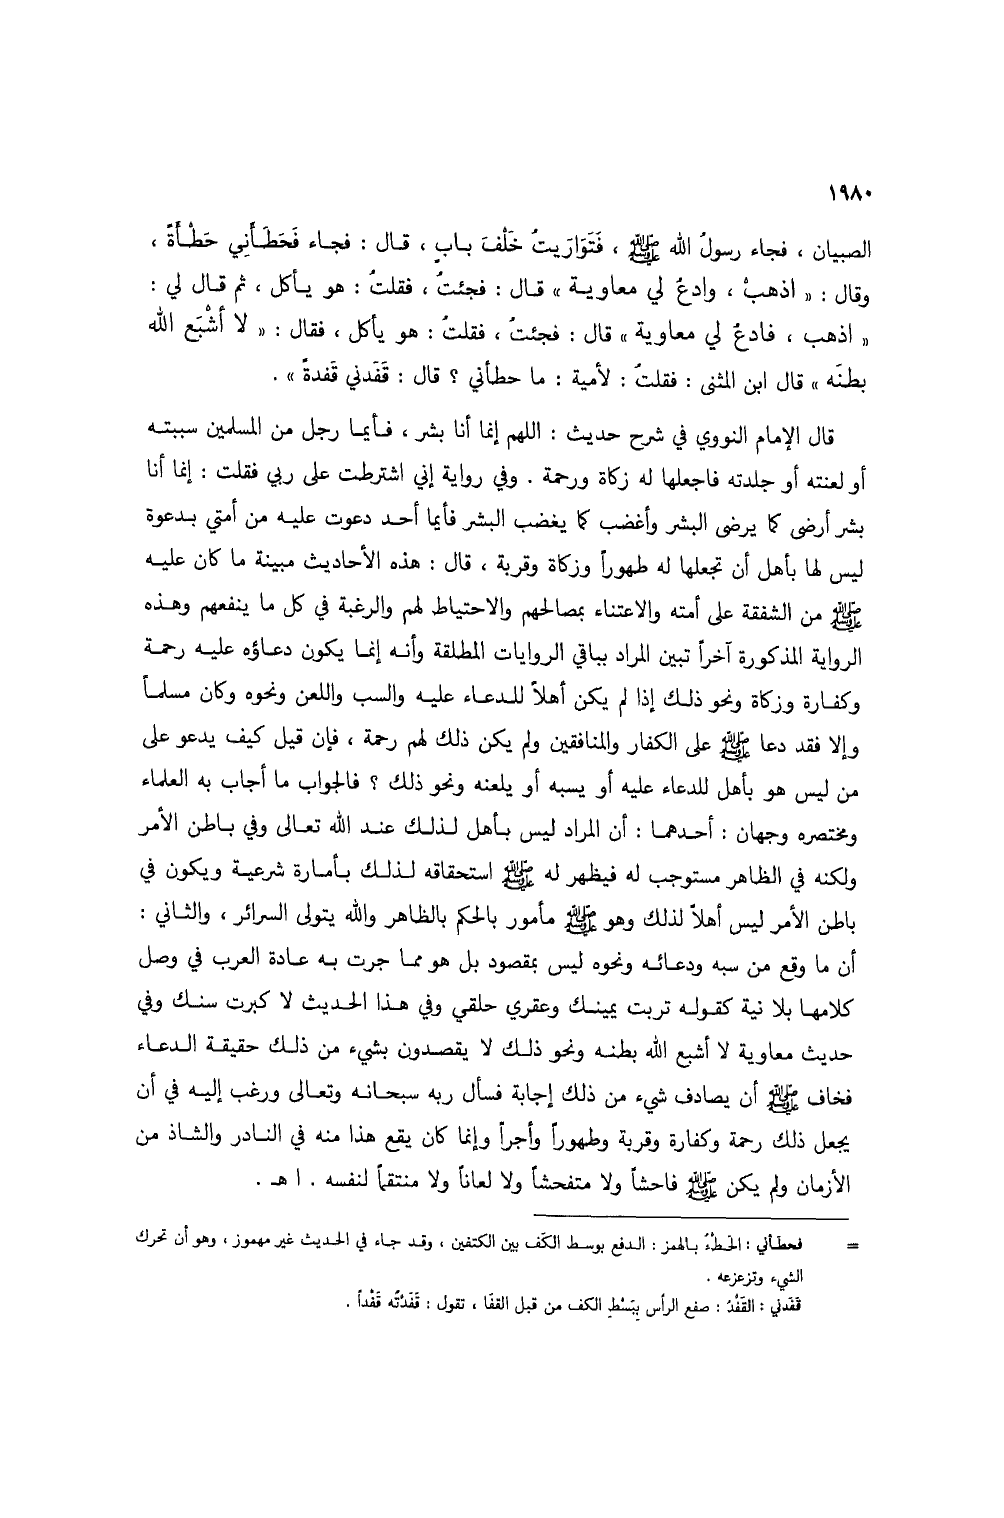 ١٩٨٠
الصبيان ، فجاء رسولُ الله ﷺ ، فَتَوَارَيتُ خَلْفَ بـابٍ ، قـال : فجـاء فَحَطَأَنِي حَطْأَةً ،
وقال : « اذهبْ ، وادعُ لي معاويـة » قـال : فجئتُ ، فقلتُ : هو يـأكل ، ثم قـال لي :
« اذهب ، فادعُ لي معاوية » قال : فجئتُ ، فقلتُ : هو يأكل ، فقال : « لا أَشْبَع الله
بطنَه » قال ابن المثنى : فقلتُ : لأمية : ما حطأني ؟ قال : قَفَدني قَفدةً » .
قال الإمام النووي في شرح حديث : اللهم إنما أنا بشر ، فـأيمـا رجل من المسلمين سببتـه
أو لعنته أو جلدته فاجعلها له زكاة ورحمة . وفي رواية إني اشترطت على ربي فقلت : إنما أنا
بشر أرضى كما يرضى البشر وأغضب كما يغضب البشر فأيما أحـد دعوت عليـه من أمتي بـدعوة
ليس لها بأهل أن تجعلها له طهوراً وزكاة وقربة ، قال : هذه الأحاديث مبينة ما كان عليـه
ﷺ من الشفقة على أمته والاعتناء بمصالحهم والاحتياط لهم والرغبة في كل ما ينفعهم وهـذه
الرواية المذكورة آخراً تبين المراد بباقي الروايات المطلقة وأنـه إنمـا يكون دعـاؤه عليـه رحمـة
وكفـارة وزكاة ونحو ذلـك إذا لم يكن أهلاً للـدعـاء عليـه والسب واللعن ونحوه وكان مسلمـاً
وإلا فقد دعا ﷺ على الكفار والمنافقين ولم يكن ذلك لهم رحمة ، فإن قيل كيف يدعو على
من ليس هو بأهل للدعاء عليه أو يسبه أو يلعنه ونحو ذلك ؟ فالجواب ما أجاب به العلماء
ومختصره وجهان : أحـدهمـا : أن المراد ليس بـأهل لـذلـك عنـد الله تعـالى وفي بـاطن الأمر
ولكنه في الظاهر مستوجب له فيظهر له ﷺ استحقاقه لـذلـك بـأمـارة شرعيـة ويكون في
باطن الأمر ليس أهلاً لذلك وهو ﷺ مأمور بالحكم بالظاهر والله يتولى السرائر ، والثـاني :
أن ما وقع من سبه ودعـائـه ونحوه ليس بمقصود بل هو ممـا جرت بـه عـادة العرب في وصل
كلامهـا بلا نية كقولـه تربت يمينـك وعقري حلقي وفي هـذا الحـديث لا كبرت سنـك وفي
حديث معاوية لا أشبع الله بطنـه ونحو ذلـك لا يقصـدون بشيء من ذلـك حقيقـة الـدعـاء
فخاف ﷺ أن يصادف شيء من ذلك إجابة فسأل ربه سبحانـه وتعـالى ورغب إليـه في أن
يجعل ذلك رحمة وكفارة وقربة وطهوراً وأجراً وإنما كان يقع هذا منه في النـادر والشـاذ من
الأزمان ولم يكن ﷺ فاحشاً ولا متفحشاً ولا لعاناً ولا منتقماً لنفسه . ا هـ .
= فحطـأني : الحَـطْءُ بـالهمز : الـدفع بوسـط الكف بين الكتفين ، وقـد جـاء في الحـديث غير مهموز ، وهو أن تحرك
الشيء وتزعزعه .
قَفَدني : القَفْدُ : صفع الرأس بِبَسْطِ الكف من قبل القفَا ، تقول : قَفَدْتُه قَفْداً .